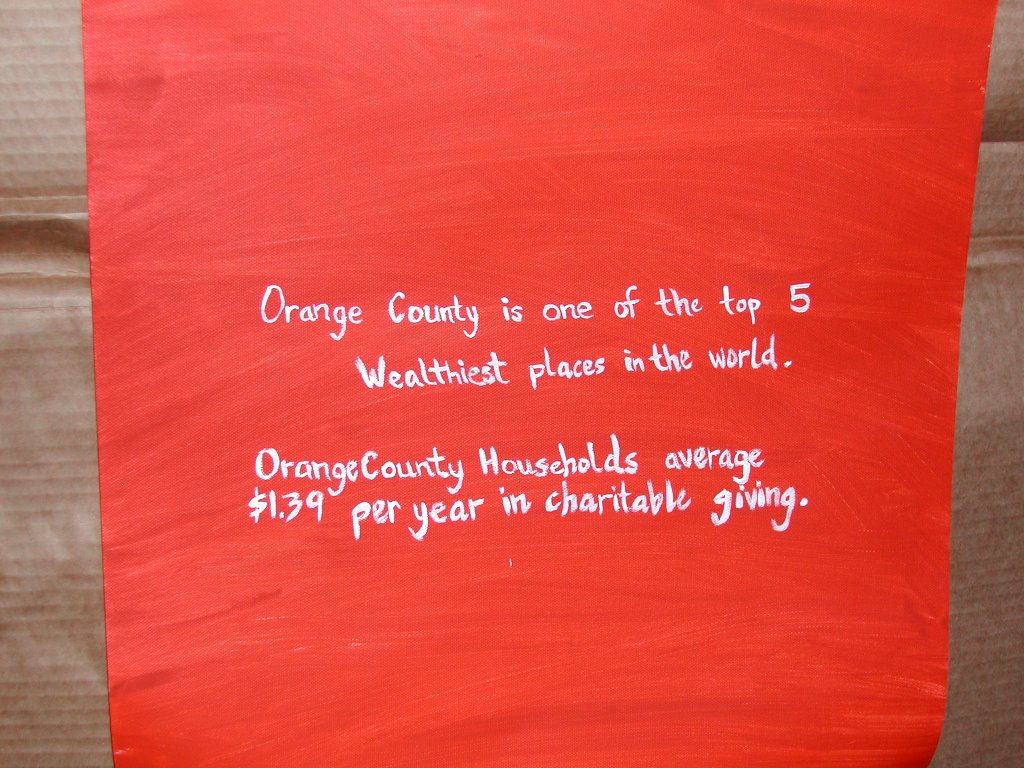 Orange County is one of the top 5
Wealthiest places in the world.
Orange County Households average
$1.39 per year in charitable giving.